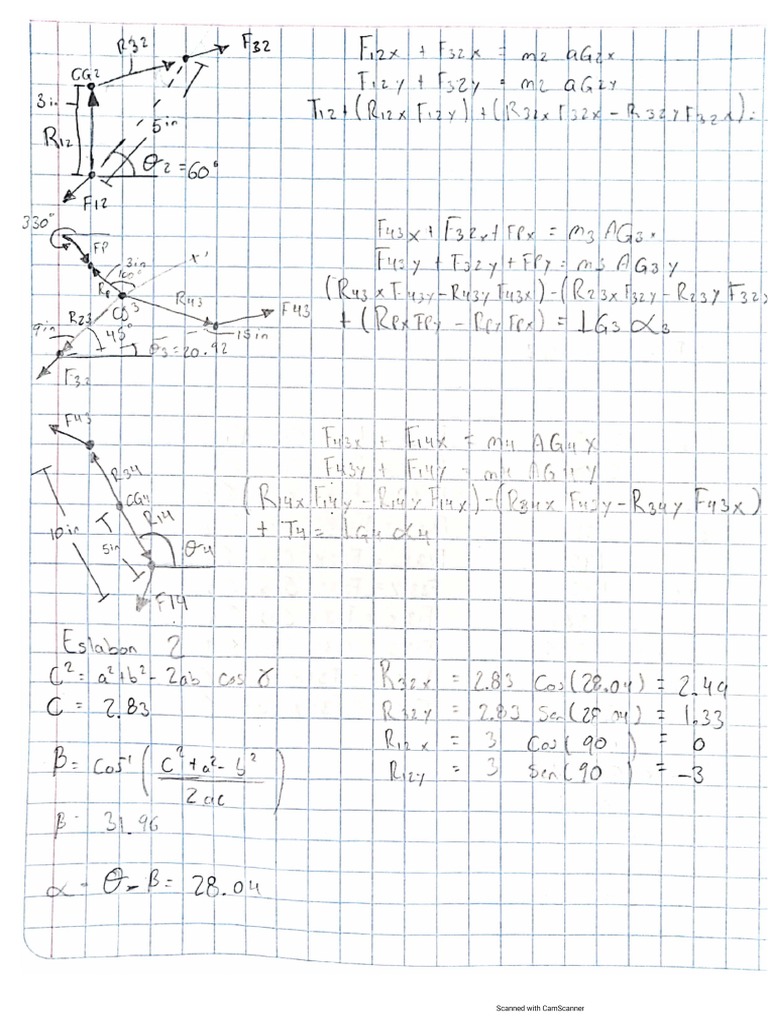 R32
F32
CG2
3in
R12
5in
θ2 = 60°
F12
F12x + F32x = m2 aG2x
F12y + F32y = m2 aG2y
T12 + (R12x F12y) + (R32x F32x - R32y F32x) =
330°
FP
3in
100°
x'
R43
F43
CG3
R23
9in
45°
θ3 = 20.92
15in
F43x + F32x + FPx = m3 AG3x
F43y + F32y + FPy = m3 AG3y
(R43x F43y - R43y F43x) - (R23x F32y - R23y F32x)
+ (RPx FPy - RPy FPx) = IG3 α3
F43
R34
CG4
R14
10in
5in
θ4
F14
F43x + F14x = m4 AG4x
F43y + F14y = m4 AG4y
(R14x F14y - R14y F14x) - (R34x F43y - R34y F43x)
+ T4 = IG4 α4
Eslabon 2
C² = a² + b² - 2ab cos γ
C = 2.83
β = cos⁻¹ ( (c² + a² - b²) / 2ac )
β = 31.96
α = θ - β = 28.04
R32x = 2.83 Cos(28.04) = 2.49
R32y = 2.83 Sen(28.04) = 1.33
R12x = 3 Cos(90) = 0
R12y = 3 Sen(90) = -3
Scanned with CamScanner